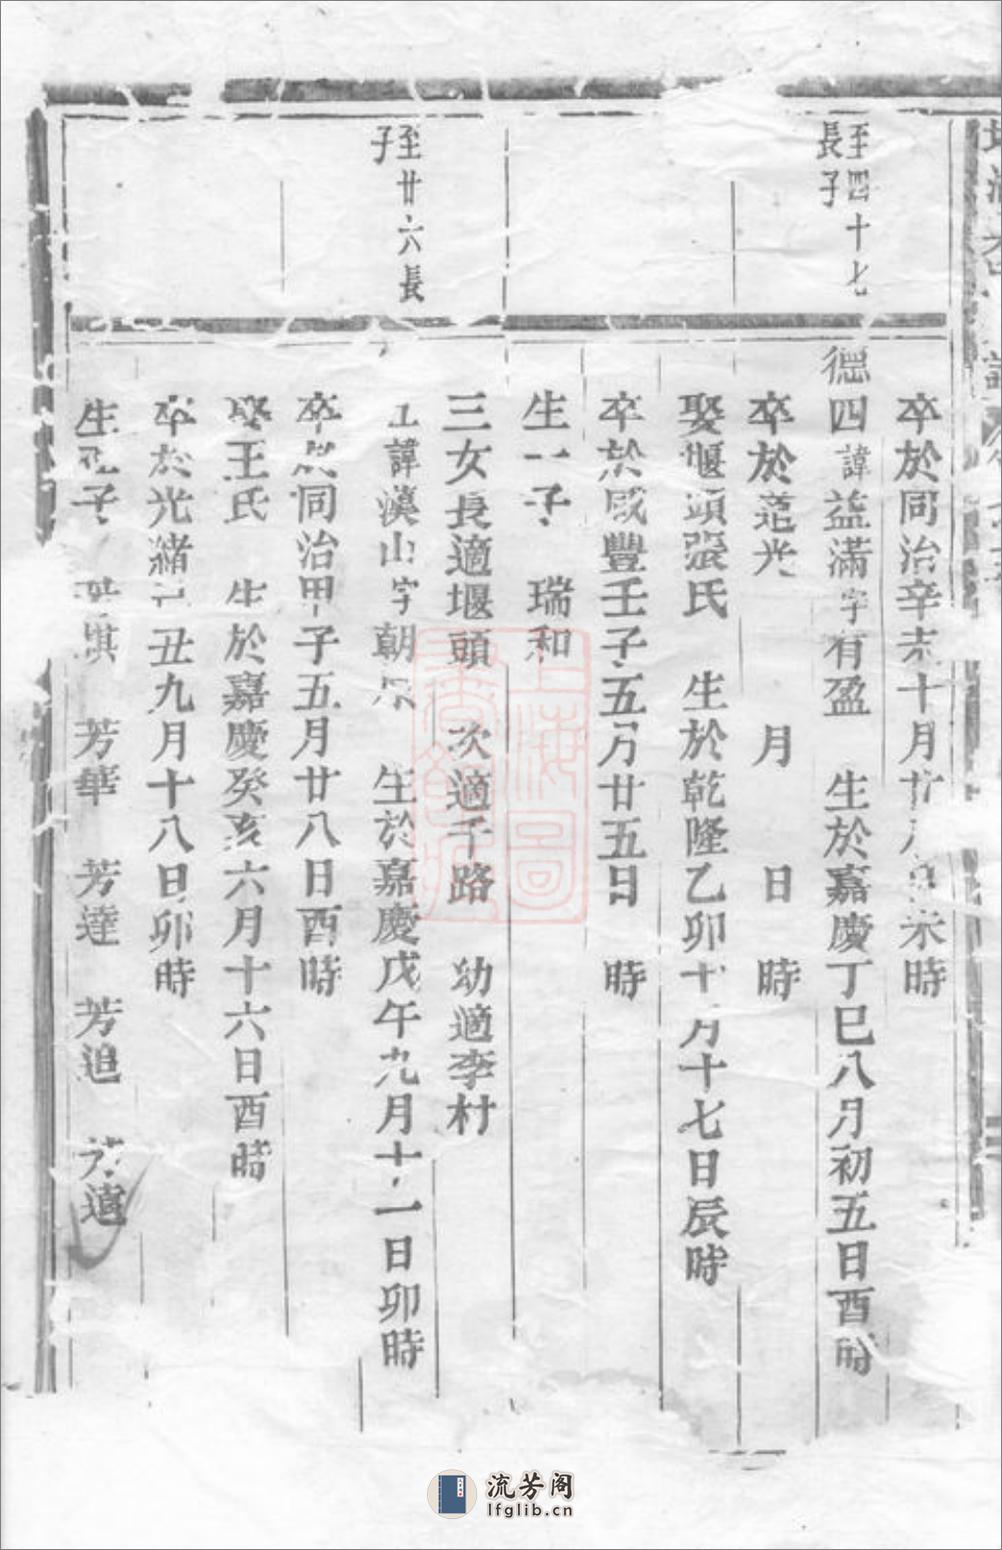 卒於同治辛未十月廿 未時
至四十七
長子
德四諱益滿字有盈 生於嘉慶丁巳八月初五日酉時
卒於道光 月 日 時
娶堰頭張氏 生於乾隆乙卯十 月十七日辰時
卒於咸豐壬子五月廿五日 時
生一子 瑞和
三女長適堰頭 次適千路 幼適李村
至廿六長
子
諱漢山字朝 生於嘉慶戊午九月十一日卯時
卒於同治甲子五月廿八日酉時
娶王氏 生於嘉慶癸亥六月十六日酉時
卒於光緒 丑九月十八日卯時
生 子 芳華 芳達 芳追
上海圖書館藏
流芳阁
lfglib.cn